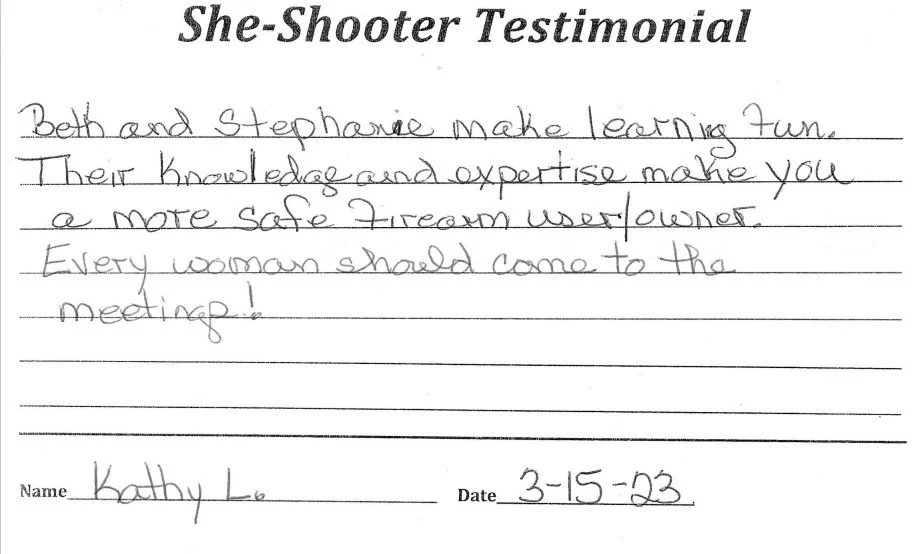 She-Shooter Testimonial
Beth and Stephanie make learning fun.
Their knowledge and expertise make you
a more safe firearm user/owner.
Every woman should come to the
meetings!
Name Kathy L. Date 3-15-23